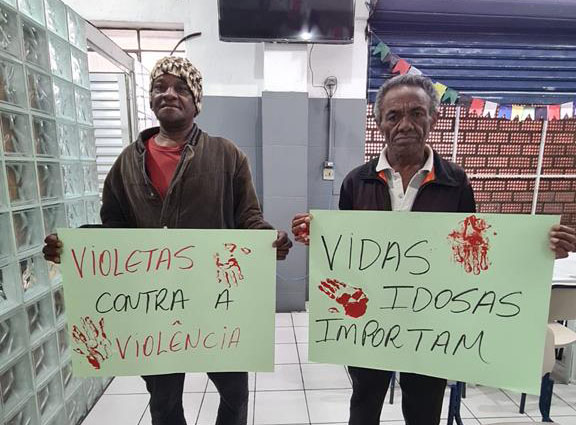 VIOLETAS
CONTRA A
VIOLÊNCIA
VIDAS
IDOSAS
IMPORTAM